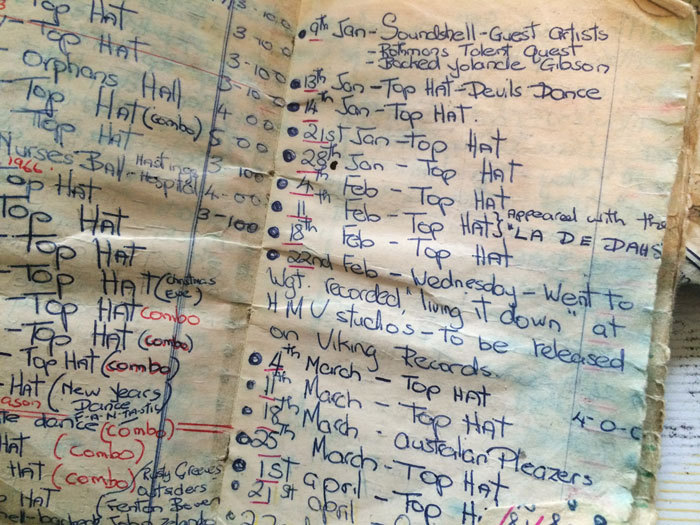 Top HAT
3-10.0
Top HAT
3-10.0
- Orphans Hall
3-100
Top HAT (combo)
3-100
Top HAT
4 00
5 00
Nurses Ball - Hastings Hospital
1966.
3-100
Top HAT
4-00
Top HAT
3-100
- Top HAT
- Top HAT (christmas eve)
- Top HAT combo
- Top HAT (combo)
- Top HAT (combo)
- HAT (New years Dance
dance (combo)
HAT (combo)
HAT (combo) Ray Greeves
outsiders
HAT (Fenton Beven
• 9th Jan - Soundshell - Guest artists
- Rothmans Talent Quest
- Backed Yolande Gibson
• 13th Jan - Top HAT - Devils Dance
• 14th Jan - Top HAT.
• 21st Jan - Top HAT
• 28th Jan - Top HAT
• 4th Feb - Top HAT
• 11th Feb - Top HAT } Appeared with the
• 18th Feb - Top HAT "LA DE DAHS
• 22nd Feb - Wednesday - Went to
Wgt. recorded "living it down" at
HMV studios - to be released
on Viking Records.
• 4th March - Top HAT
• 11th March - Top HAT
4-0-0
• 18th March - Australian Pleazers
• 25th March - Top HAT
• 1st april - Top
• 21st april